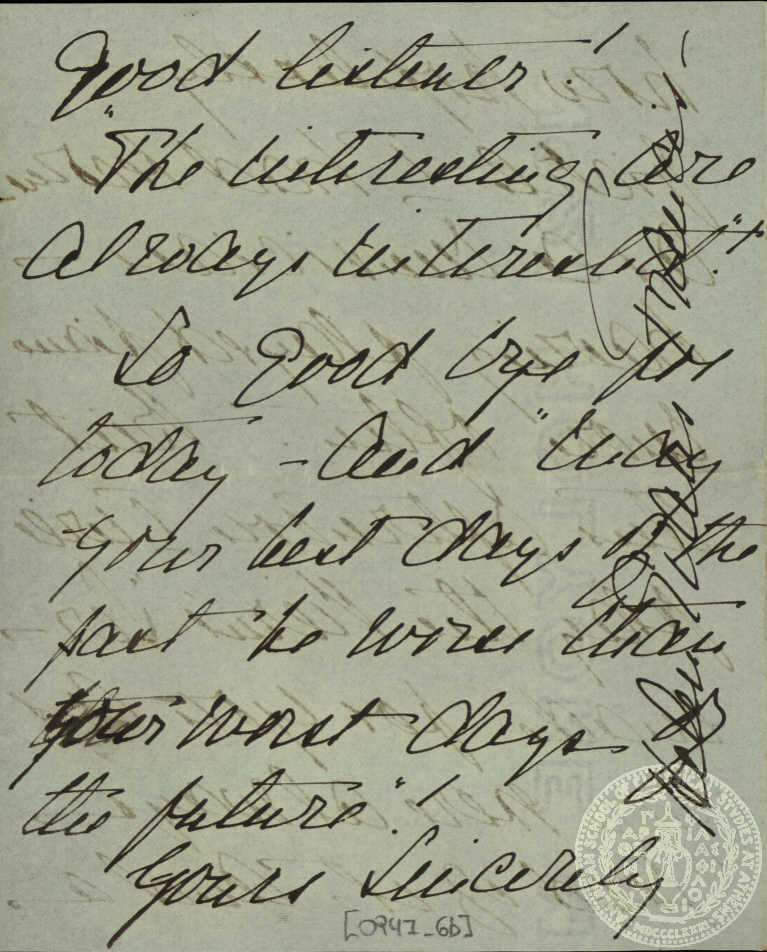 Good listener!
"The interesting are
always interested."
So Good bye for
today – and "may
your best days of the
past be worse than
your worst days of
the future."!
Yours Sincerely
[0947_6b]